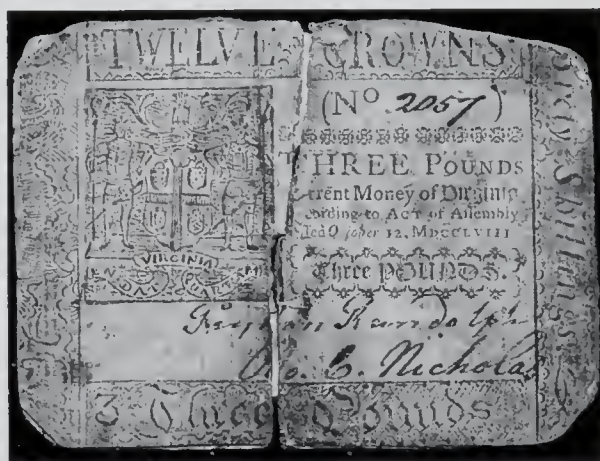 TWELVE CROWNS
(Nº 2057)
THREE POUNDS
rrent Money of VIRGINIA
cording to ACT of Assembly
October 12, MDCCLVIII
Three POUNDS.
VIRGINIA
EN DAT QUARTAM
Peyton Randolph
Ro. C. Nicholas
3 Three Pounds
Shillings